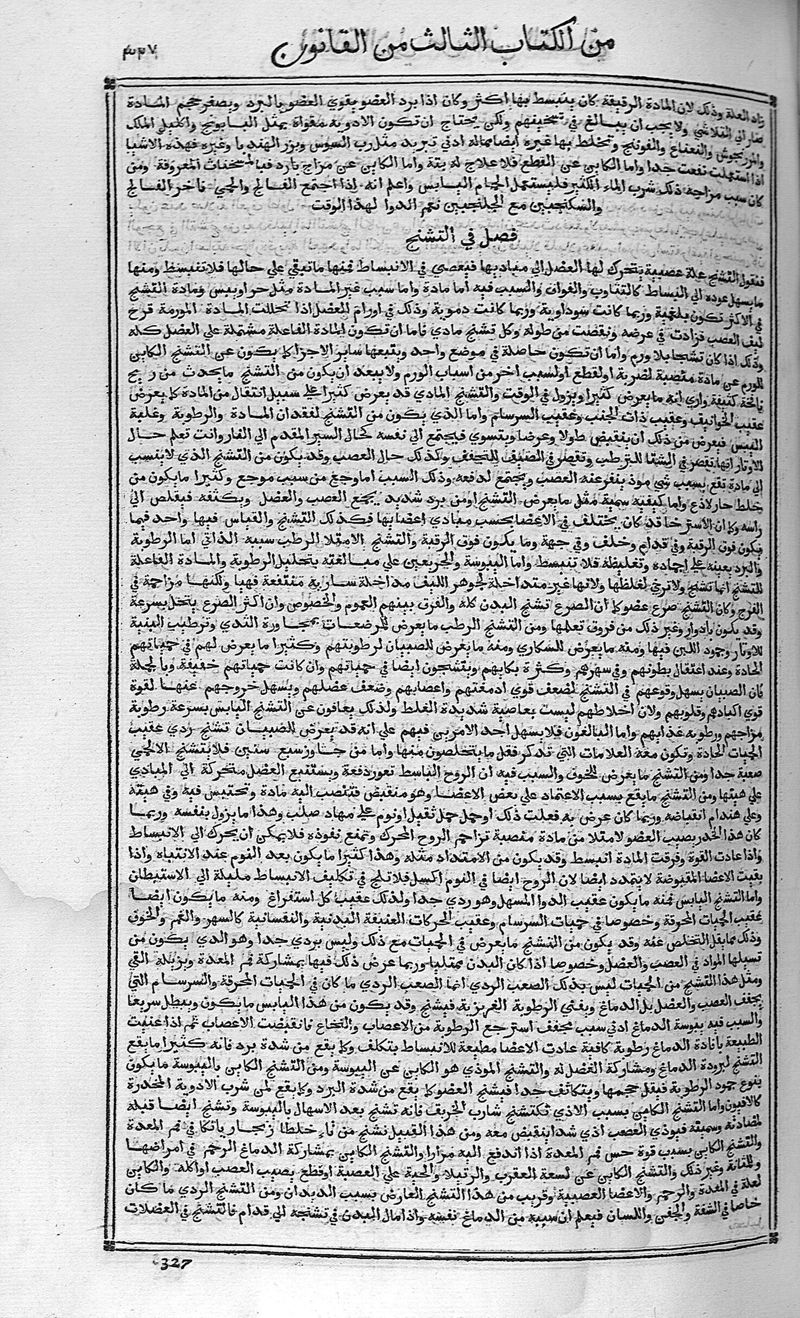 من الكتاب الثالث من القانون
زاد العلة وذلك لان المادة الرقيقة كان ينبسط بها اكثر وكان اذا برد العضو يقوي العضو بالبرد ويصغر حجم المادة
فصار الى التلاشي ولا يجب ان يبالغ في تسخينهم ولكن يحتاج ان تكون الادوية مقواة بمثل البابونج واكليل الملك
والمرزنجوش والنعناع والفوتنج وتخلط بها غيره ايضا مما له ادني تبريد مثل رب السوس وبزر الهندبا وغيره فهذه الاشيا
اذا استعملت نفعت جدا واما الكاين عن القطع فلا علاج له بتة واما الكاين عن مزاج بارد فبالمسخنات المعروفة ومن
كان سبب مزاجه ذلك شرب الماء الكثير فليستعمل الحمام اليابس واعلم انه اذا اجتمع الفالج والحمي فاخر الفالج
والسكنجبين مع الجلنجبين نعم الدوا لهذا الوقت
فصل في التشنج
فنقول التشنج علة عصبية يتحرك لها العضل الى مباديها فيعصي في الانبساط فمنها ما تبقي على حالها فلا تنبسط ومنها
ما يسهل عوده الى البساط كالتثاوب والفواق والسبب فيه اما مادة واما سبب غير المادة مثل حر او يبس ومادة التشنج
في الاكثر تكون بلغمية وربما كانت سوداوية وربما كانت دموية وذلك في اورام العضل اذا تحللت المادة المورمة فرج
ليف العصب فزادت في عرضه ونقصت من طوله وكل تشنج مادي فاما ان تكون المادة الفاعلة مشتملة على العضل كله
وذلك اذا كان تشنجا بلا ورم واما ان تكون حاصلة في موضع واحد ويتبعها ساير الاجزا كما يكون عن التشنج الكاين
للورم عن مادة منصبة لضربة او لقطع او لسبب اخر من اسباب الورم ولا يبعد ان يكون من التشنج ما يحدث من ريح
نافخة كثيفة واري انه ما يعرض كثيرا ويزول في الوقت والتشنج المادي قد يعرض كثيرا على سبيل انتقال من المادة كما يعرض
عقيب الخوانيق وعقيب ذات الجنب وعقيب السرسام واما الذي يكون من التشنج لفقدان المادة والرطوبة وغلبة
اليبس فيعرض من ذلك ان ينقبض طولا وعرضا ويتسوي فيجتمع الى نفسه كحال السير المقدم الى النار وانت تعلم حال
الاوتار انها تقصر في الشتا للترطب وتقصر في الصيف للتجفف وكذلك حال العصب وقد يكون من التشنج الذي لا ينسب
الى مادة تقع بسبب شي موذ ينفر عنه العصب ويجتمع لدفعه وذلك السبب اما وجع من سبب موجع وكثيرا ما يكون من
خلط حار لاذع واما كيفيه سمية مثل ما يعرض التشنج او من برد شديد يجمع العصب والعضل ويكثفه فيقلص الى
راسه وكما ان الاسترخا قد كان يختلف في الاعضا بحسب مبادي اعصابها فكذلك التشنج والقياس فيها واحد فيما
يكون فوق الرقبة وفي قدام وخلف وفي جهة وما يكون فوق الرقبة والتشنج الامتلا الرطب سببه الذاتي اما الرطوبة
والبرد يعينه على اجماده وتغليظه فلا تنبسط واما اليبوسة والحر يعين على مبالغته بتحليل الرطوبة والمادة الفاعلة
للتشنج انها تشنج ولا ترخي لغلظها ولانها غير متداخلة لجوهر الليف مداخلة سارية منتفعة فيها ولكنها مزاحمة في
الفرج وكان التشنج صرع عضو كما ان الصرع تشنج البدن كله والفرق بينهم العموم والخصوص وان اكثر الصرع يتحلل بسرعة
وقد يكون بادوار وغير ذلك من فروق تعلمها ومن التشنج الرطب ما يعرض للمرضعات بمجاورة الثدي وترطيب البنية
للاوتار وجمود اللبن فيها ومنه ما يعرض للسكاري ومنه ما يعرض للصبيان لرطوبتهم وكثيرا ما يعرض لهم في حمياتهم
الحادة وعند اعتقال بطونهم وفي سهرهم وكثرة بكايهم ويتشنجون ايضا في حمياتهم وان كانت حمياتهم خفيفة وبالجملة
فان الصبيان يسهل وقوعهم في التشنج لضعف قوي ادمغتهم واعصابهم وضعف عضلهم ويسهل خروجهم عنها لقوة
قوي اكبادهم وقلوبهم ولان اخلاطهم ليست بعاصية شديدة الغلظ ولذلك يعافون عن التشنج اليابس بسرعة رطوبة
مزاجهم ورطوبة غذايهم واما البالغون فلا يسهل احد الامرين فيهم على انه قد يعرض للصبيان تشنج ردي عقيب
الحميات الحادة وتكون معه العلامات التي تذكر فقل ما يتخلصون منها واما من جاوز سبع سنين فلا يتشنج الا لحمي
صعبة جدا ومن التشنج ما يعرض للخوف والسبب فيه ان الروح الباسط تغور دفعة ويستتبع العضل متحركة الى المبادي
على هيتها ومن التشنج ما يقع بسبب الاعتماد على بعض الاعضا وهو منقبض فتنصب اليه مادة وتحتبس فيه وفي هيئة
وعلى هندام انقباضه وربما كان عرض به فعلت ذلك او حمل حمل ثقيل او نوم على مهاد صلب وهذا ما يزول بنفسه وربما
كان هذا الخدر يصيب العضو لامتلا من مادة منصبة تزاحم الروح المحرك وتمنع نفوذه فلا يمكن ان يحرك الى الانبساط
واذا عادت القوة وفرقت المادة انبسط وقد يكون من الامتداد مثله وهذا كثيرا ما يكون بعد النوم عند الانتباه واذا
بقيت الاعضا المقبوضة لا يتمدد ايضا لان الروح ايضا في النوم اكسل فلا تلج في تكليف الانبساط مليلة الى الاستبطان
واما التشنج اليابس فمنه ما يكون عقيب الدوا المسهل وهو ردي جدا ولذلك عقيب كل استفراغ ومنه ما يكون ايضا
بعقيب الحميات المحرقة وخصوصا في حميات السرسام وعقيب الحركات العنيفة البدنية والنفسانية كالسهر والغم والخوف
وذلك ما يقل التخلص عنه وقد يكون من التشنج ما يعرض في الحميات مع ذلك وليس بردي جدا وهو الذي يكون من
تسييلها المواد في العصب والعضل وخصوصا اذا كان البدن ممتليا وربما عرض ذلك فيها بمشاركة فم المعدة ويزيله القي
ومثل هذا التشنج من الحميات ليس بذلك الصعب الردي انما الصعب الردي ما كان في الحميات المحرقة والسرسام التي
يجفف العصب والعضل بل الدماغ ويفني الرطوبة الغريزية فيشنج وقد يكون من هذا اليابس ما يكون ويبطل سريعا
والسبب فيه يبوسة الدماغ ادني سبب مجفف استرجع الرطوبة من الاعصاب والنخاع فانقبضت الاعصاب ثم اذا عنيت
الطبيعة بافادة الدماغ رطوبة كافية عادت الاعضا مطيعة للانبساط بتكلف وكما يقع من شدة برد فانه كثيرا ما يقع
التشنج لبرودة الدماغ ومشاركة العضل له والتشنج الموذي هو الكاين عن اليبوسة ومن التشنج الكاين باليبوسة ما يكون
بنوع جمود الرطوبة فيقل حجمها ويتكاثف جدا فيشنج العضو كما يقع من شدة البرد وكما يقع لمن شرب الادوية المخدرة
كالافيون واما التشنج الكاين بسبب الاذي فكتشنج شارب الخربق فانه تشنج بعد الاسهال باليبوسة وتشنج ايضا قبله
لمضادته وسميته فيوذي العصب اذي شديدا ينقبض معه ومن هذا القبيل تشنج من قاء خلطا زنجاريا نكا في فم المعدة
والتشنج الكاين بسبب قوة حس فم المعدة اذا اندفع اليه مرارا والتشنج الكاين بمشاركة الدماغ الرحم في امراضها
والمثانة وغير ذلك والتشنج الكاين عن لسعة العقرب والرتيلا والحية على العصبة او قطع يصيب العصب او اكلة والكاين
لعلة في المعدة والرحم والاعضا العصبية وقريب من هذا التشنج العارض بسبب الديدان ومن التشنج الردي ما كان
خاصا في الشفة والجفن واللسان فيعلم ان سببه من الدماغ نفسه واذا مال البدن في تشنجه الى قدام فالتشنج في العضلات
327